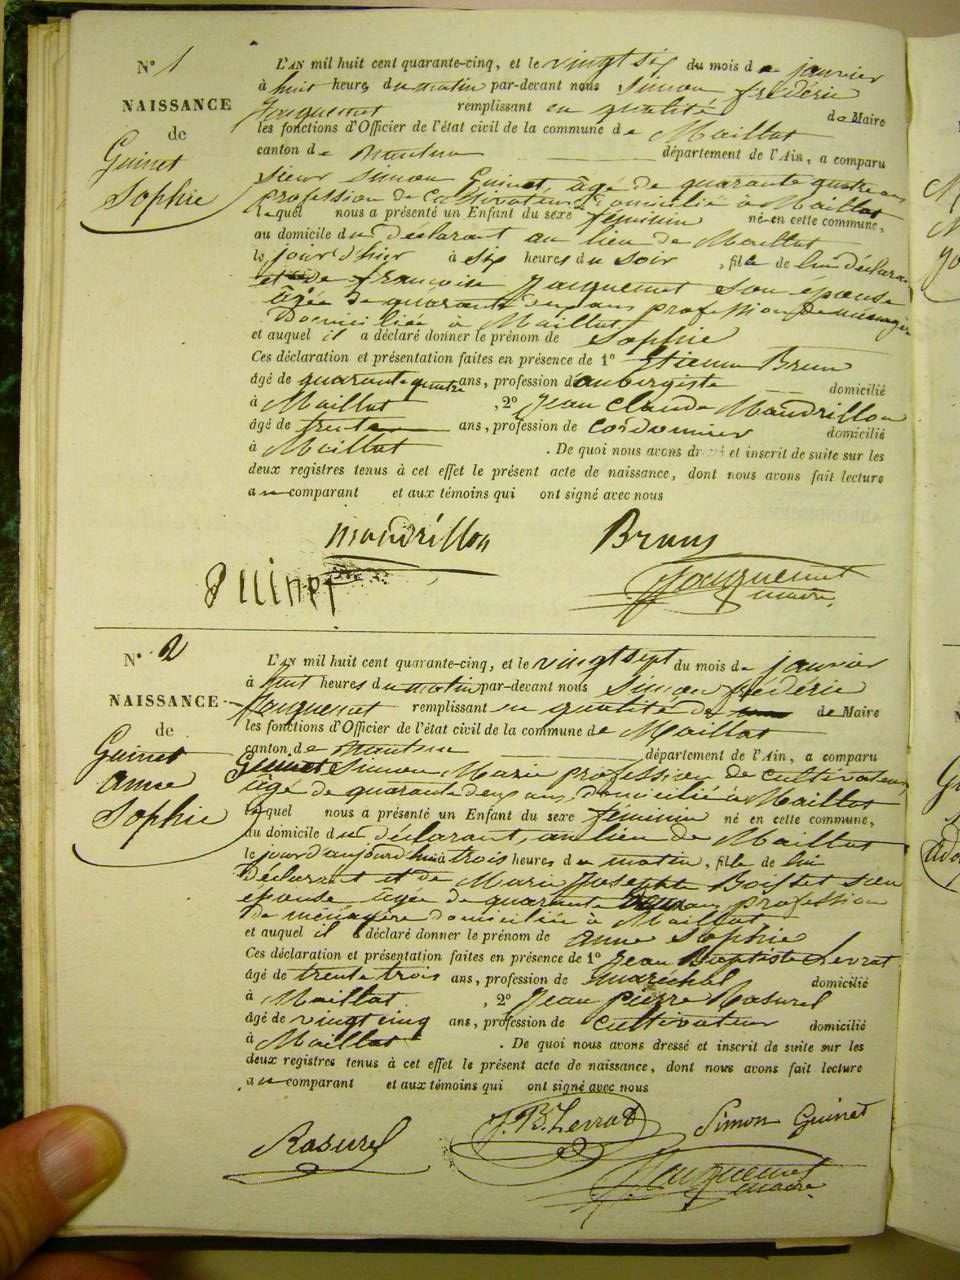 N° 1
NAISSANCE
de
Guinet
Sophie
L'AN mil huit cent quarante-cinq, et le vingt six du mois de janvier
à huit heures du matin par-devant nous Simon frédéric
Jacquemet remplissant en qualité de Maire
les fonctions d'Officier de l'état civil de la commune de Maillat
canton de nantua département de l'Ain, a comparu
sieur simon Guinet, âgé de quarante quatre ans
profession de cultivateur domicilié à Maillat
lequel nous a présenté un Enfant du sexe féminin né en cette commune,
au domicile du déclarant au lieu de Maillat
le jour d'hier à six heures du soir, fille de lui déclarant
et de françoise Jacquemet son épouse
âgée de quarante deux ans profession de ménagère
domiciliée à Maillat
et auquel il a déclaré donner le prénom de Sophie
Ces déclaration et présentation faites en présence de 1° Etienne Brun
âgé de quarante quatre ans, profession d'aubergiste domicilié
à Maillat, 2° Jean Claude Mandrillon
âgé de trente ans, profession de cordonnier domicilié
à Maillat. De quoi nous avons dressé et inscrit de suite sur les
deux registres tenus à cet effet le présent acte de naissance, dont nous avons fait lecture
au comparant et aux témoins qui ont signé avec nous
mandrillon Brun
Guinet Jacquemet
maire
N° 2
NAISSANCE
de
Guinet
anne
Sophie
L'AN mil huit cent quarante-cinq, et le vingt sept du mois de janvier
à huit heures du matin par-devant nous Simon frédéric
Jacquemet remplissant en qualité de de Maire
les fonctions d'Officier de l'état civil de la commune de Maillat
canton de nantua département de l'Ain, a comparu
Guinet Simon Marie profession de cultivateur
âgé de quarante deux ans domicilié à Maillat
lequel nous a présenté un Enfant du sexe féminin né en cette commune,
au domicile du déclarant, au lieu de Maillat
le jour d'aujourd'hui à trois heures du matin, fille de lui
déclarant et de Marie Josephte Boisset son
épouse âgée de quarante ans profession
de ménagère domiciliée à Maillat
et auquel il a déclaré donner le prénom de anne Sophie
Ces déclaration et présentation faites en présence de 1° Jean Baptiste Levrat
âgé de trente trois ans, profession de maréchal domicilié
à Maillat, 2° Jean pierre Rasurel
âgé de vingt cinq ans, profession de cultivateur domicilié
à Maillat. De quoi nous avons dressé et inscrit de suite sur les
deux registres tenus à cet effet le présent acte de naissance, dont nous avons fait lecture
au comparant et aux témoins qui ont signé avec nous
Rasurel J. B. Levrat Simon Guinet
Jacquemet
maire